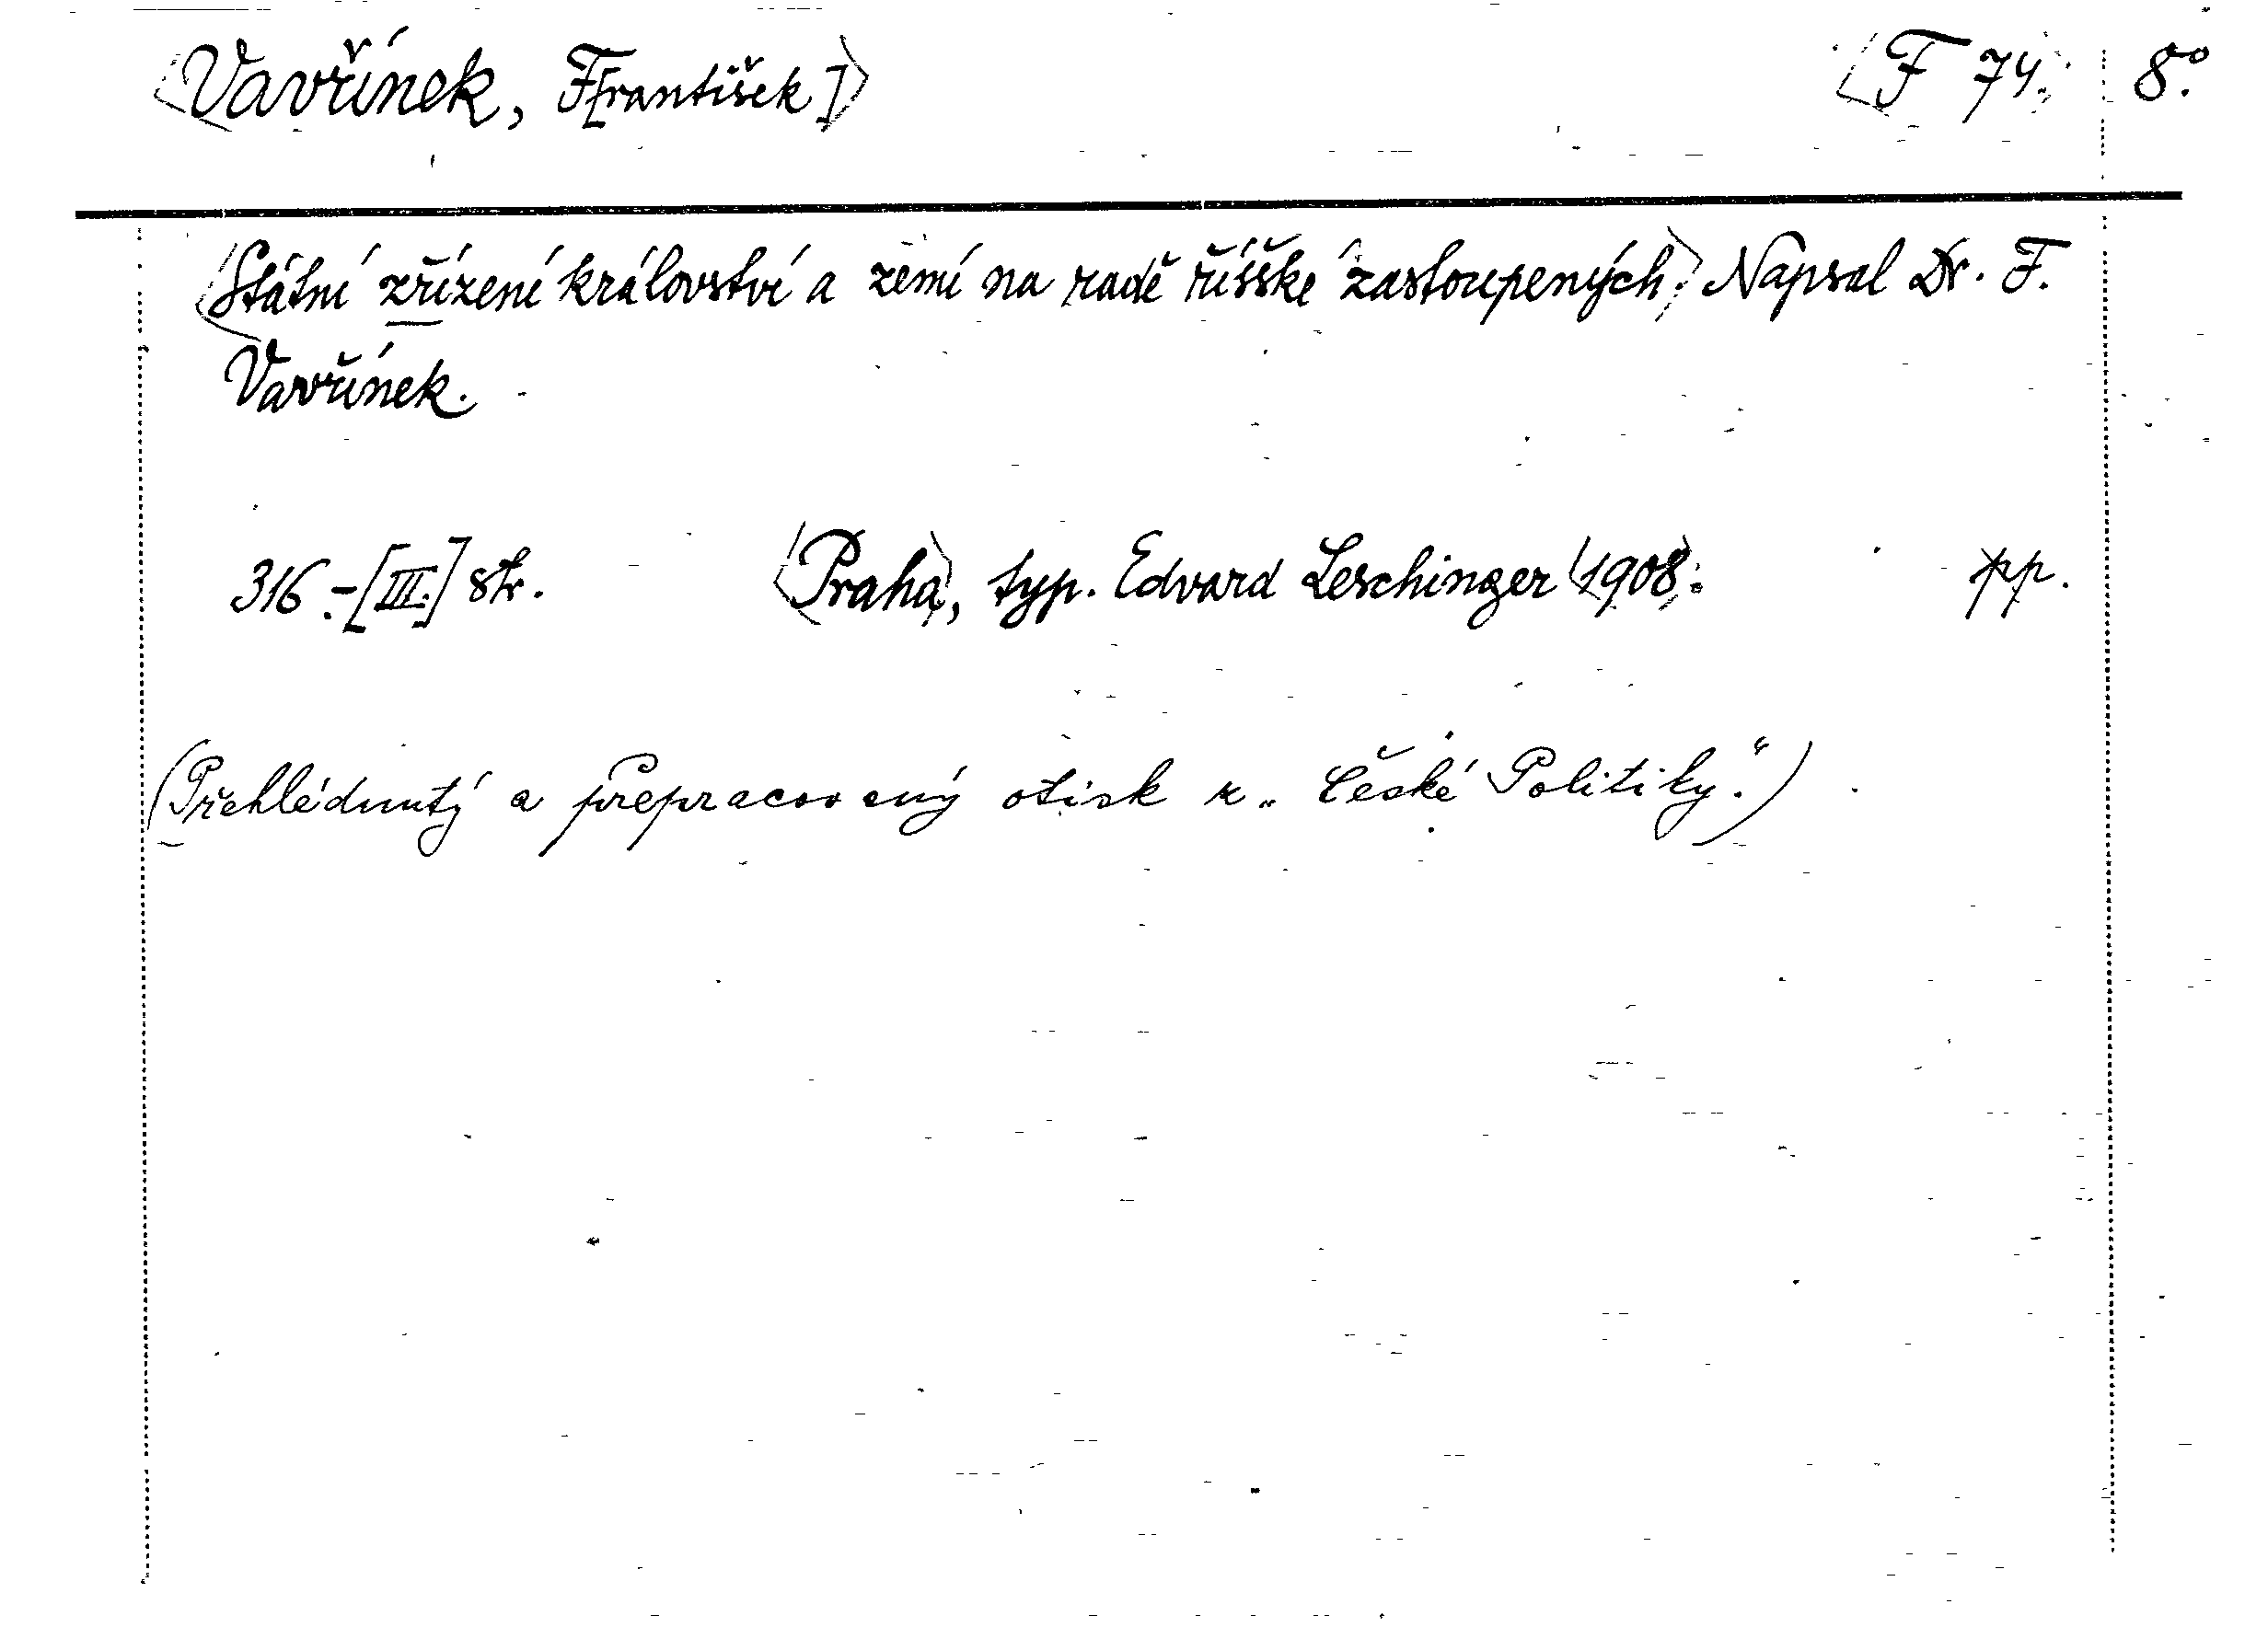 Vavřínek, F[rantišek] F 74. 8°.
Státní zřízení království a zemí na radě říšské zastoupených. Napsal Dr. F.
Vavřínek.
316.-[III.] str. Praha, typ. Edvard Leschinger 1908. pp.
(Přehlédnutý a přepracovaný otisk z „České Politiky.“)